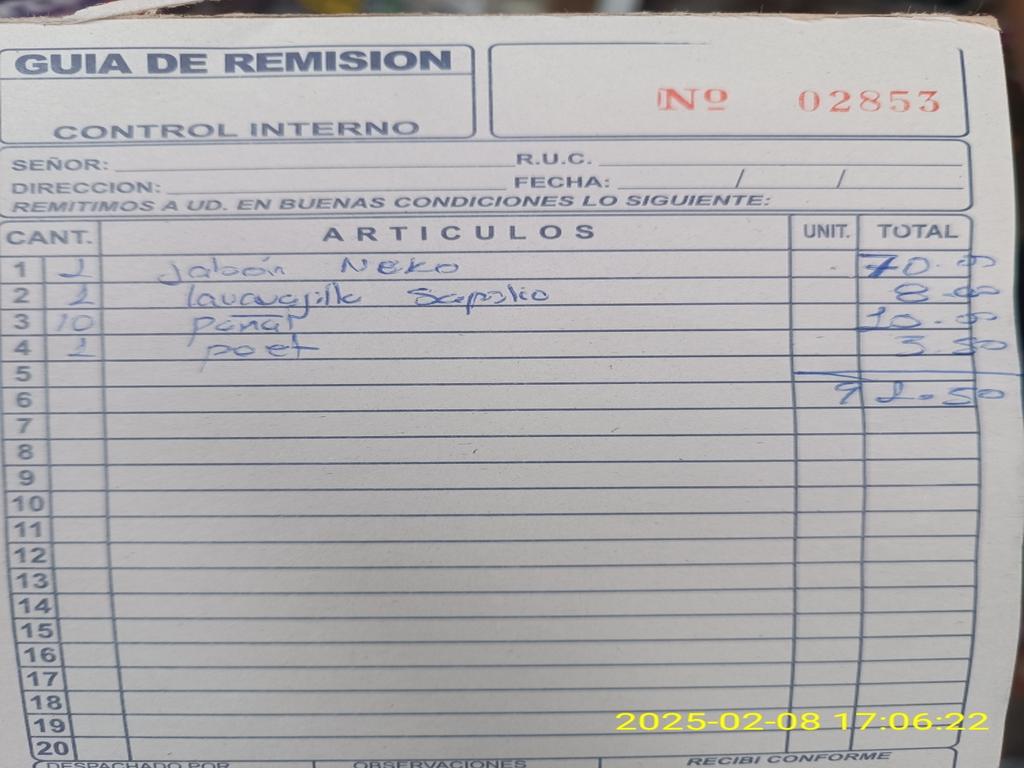 GUIA DE REMISION
CONTROL INTERNO
Nº 02853
SEÑOR: R.U.C.
DIRECCION: FECHA: / /
REMITIMOS A UD. EN BUENAS CONDICIONES LO SIGUIENTE:
CANT. ARTICULOS UNIT. TOTAL
1 1 Jabón Neko 70.00
2 1 lavavajilla Sapolio 8.00
3 10 pañal 10.00
4 1 poet 3.50
5
6 91.50
7
8
9
10
11
12
13
14
15
16
17
18
19
20
2025-02-08 17:06:22
DESPACHADO POR OBSERVACIONES RECIBI CONFORME